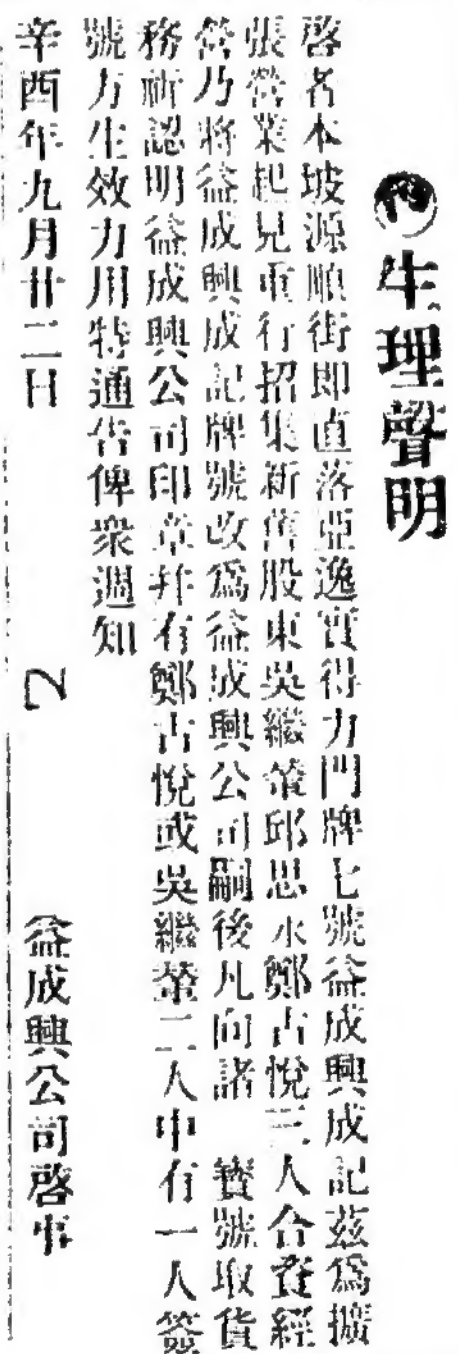 生理聲明
啓者本坡源順街即直落亞逸實得力門牌七號益成興成記茲爲擴
張營業起見重行招集新舊股東吳繼榮邱思水鄭占悅三人合資經
營乃將益成興成記牌號改爲益成興公司嗣後凡向諸 寶號取貨
務祈認明益成興公司印章并有鄭古悅或吳繼榮二人中有一人簽
號方生效力用特通告俾衆週知
辛酉年九月廿二日 Z 益成興公司啓事